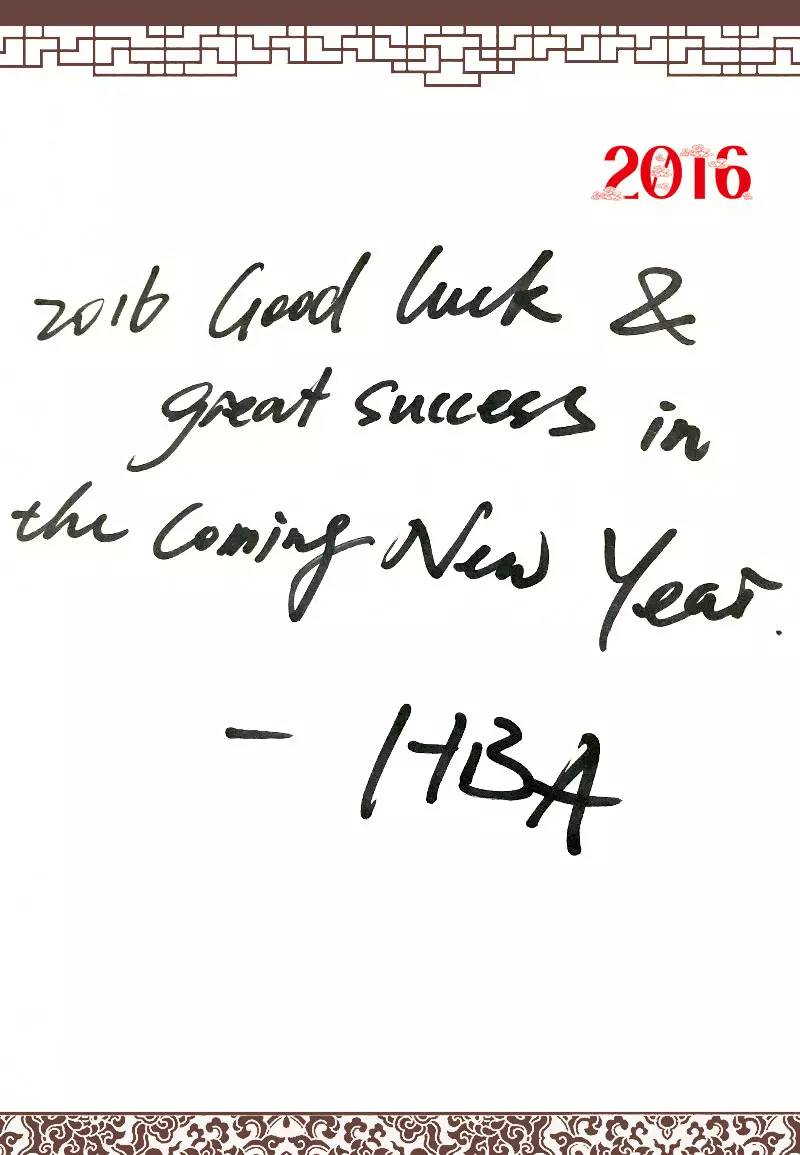 2016
2016 Good luck &
great success in
the coming New Year.
- HBA